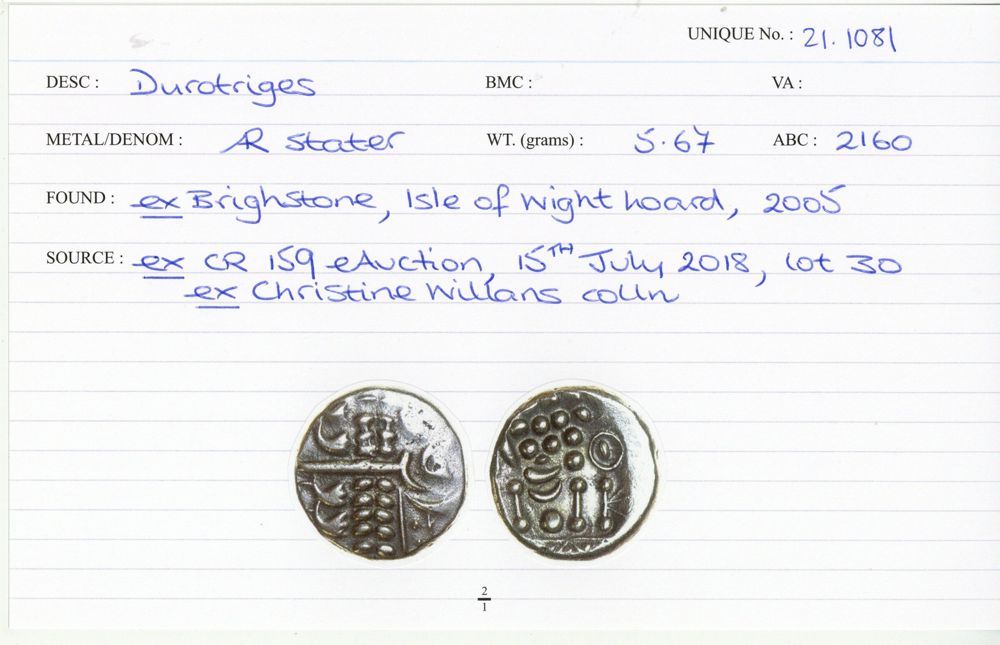 UNIQUE No. : 21.1081
DESC : Durotriges BMC : VA :
METAL/DENOM : AR stater WT. (grams) : 5.67 ABC : 2160
FOUND : ex Brighstone, Isle of Wight hoard, 2005
SOURCE : ex CR 159 eAuction, 15TH July 2018, lot 30
ex Christine Willans colln
2
1